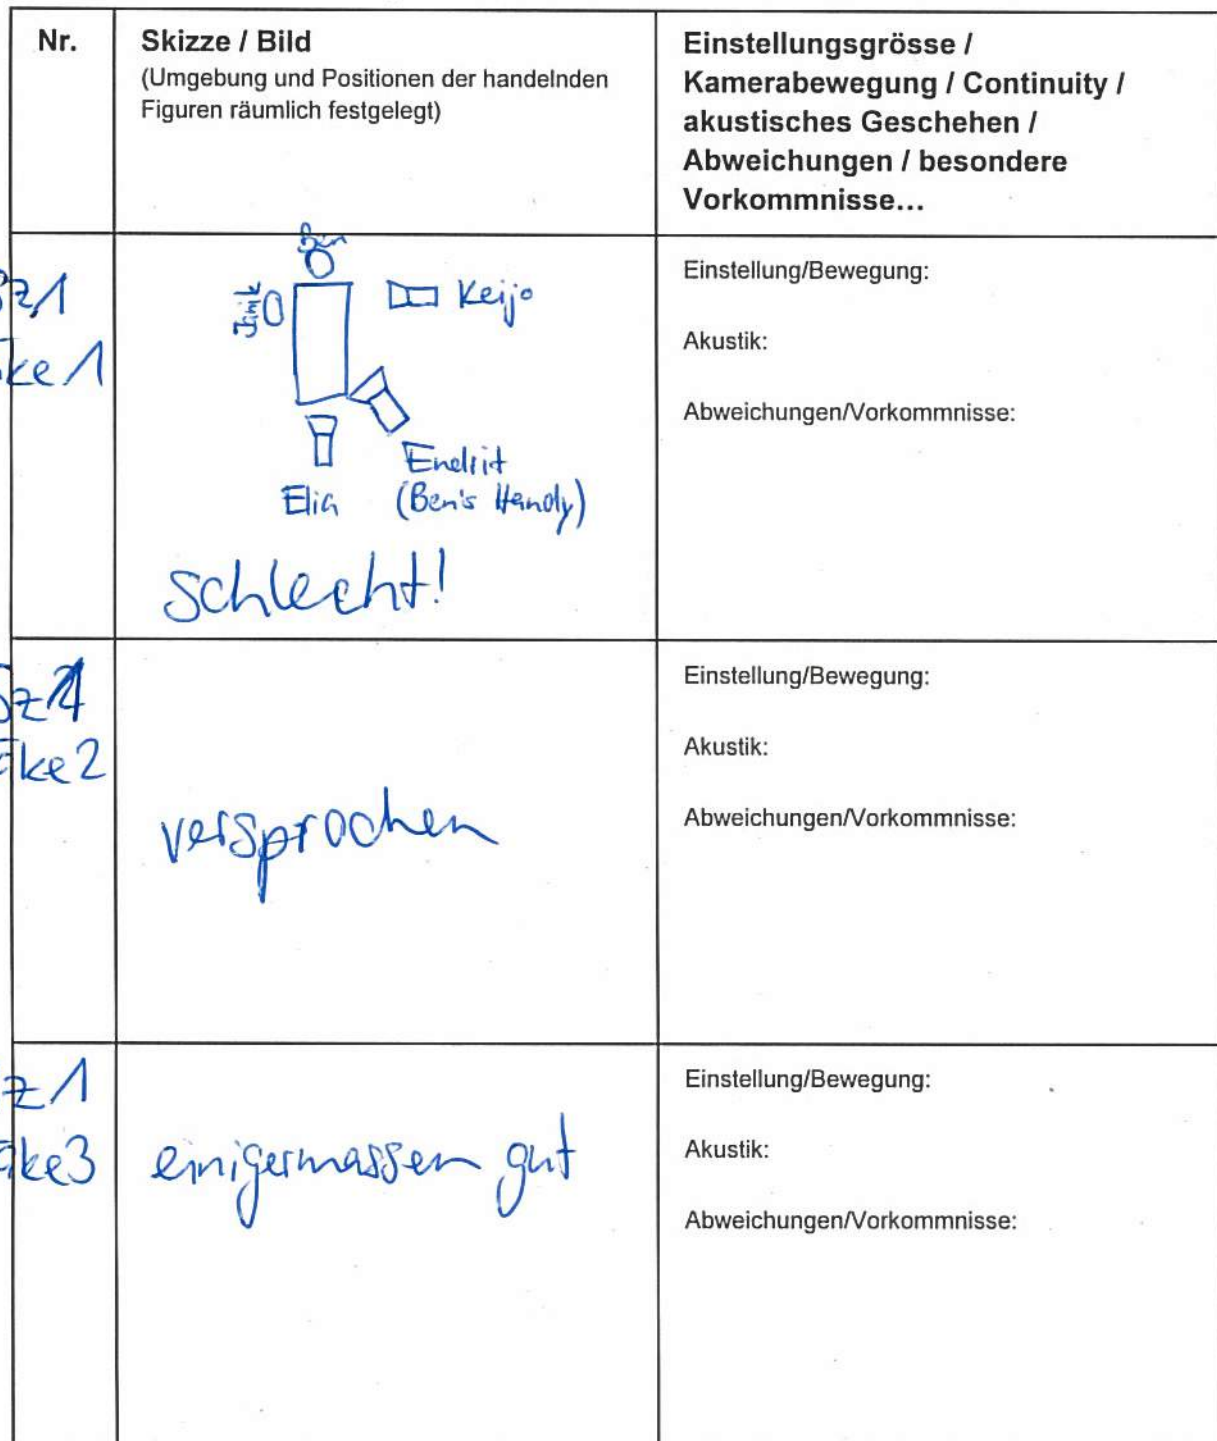 Nr.
Skizze / Bild
(Umgebung und Positionen der handelnden
Figuren räumlich festgelegt)
Einstellungsgrösse /
Kamerabewegung / Continuity /
akustisches Geschehen /
Abweichungen / besondere
Vorkommnisse...
Sz 1
ke 1
Ben
Keijo
Endrit
(Ben's Handy)
Elia
schlecht!
Einstellung/Bewegung:
Akustik:
Abweichungen/Vorkommnisse:
Sz 1
ake 2
versprochen
Einstellung/Bewegung:
Akustik:
Abweichungen/Vorkommnisse:
z 1
ake 3
einigermassen gut
Einstellung/Bewegung:
Akustik:
Abweichungen/Vorkommnisse: